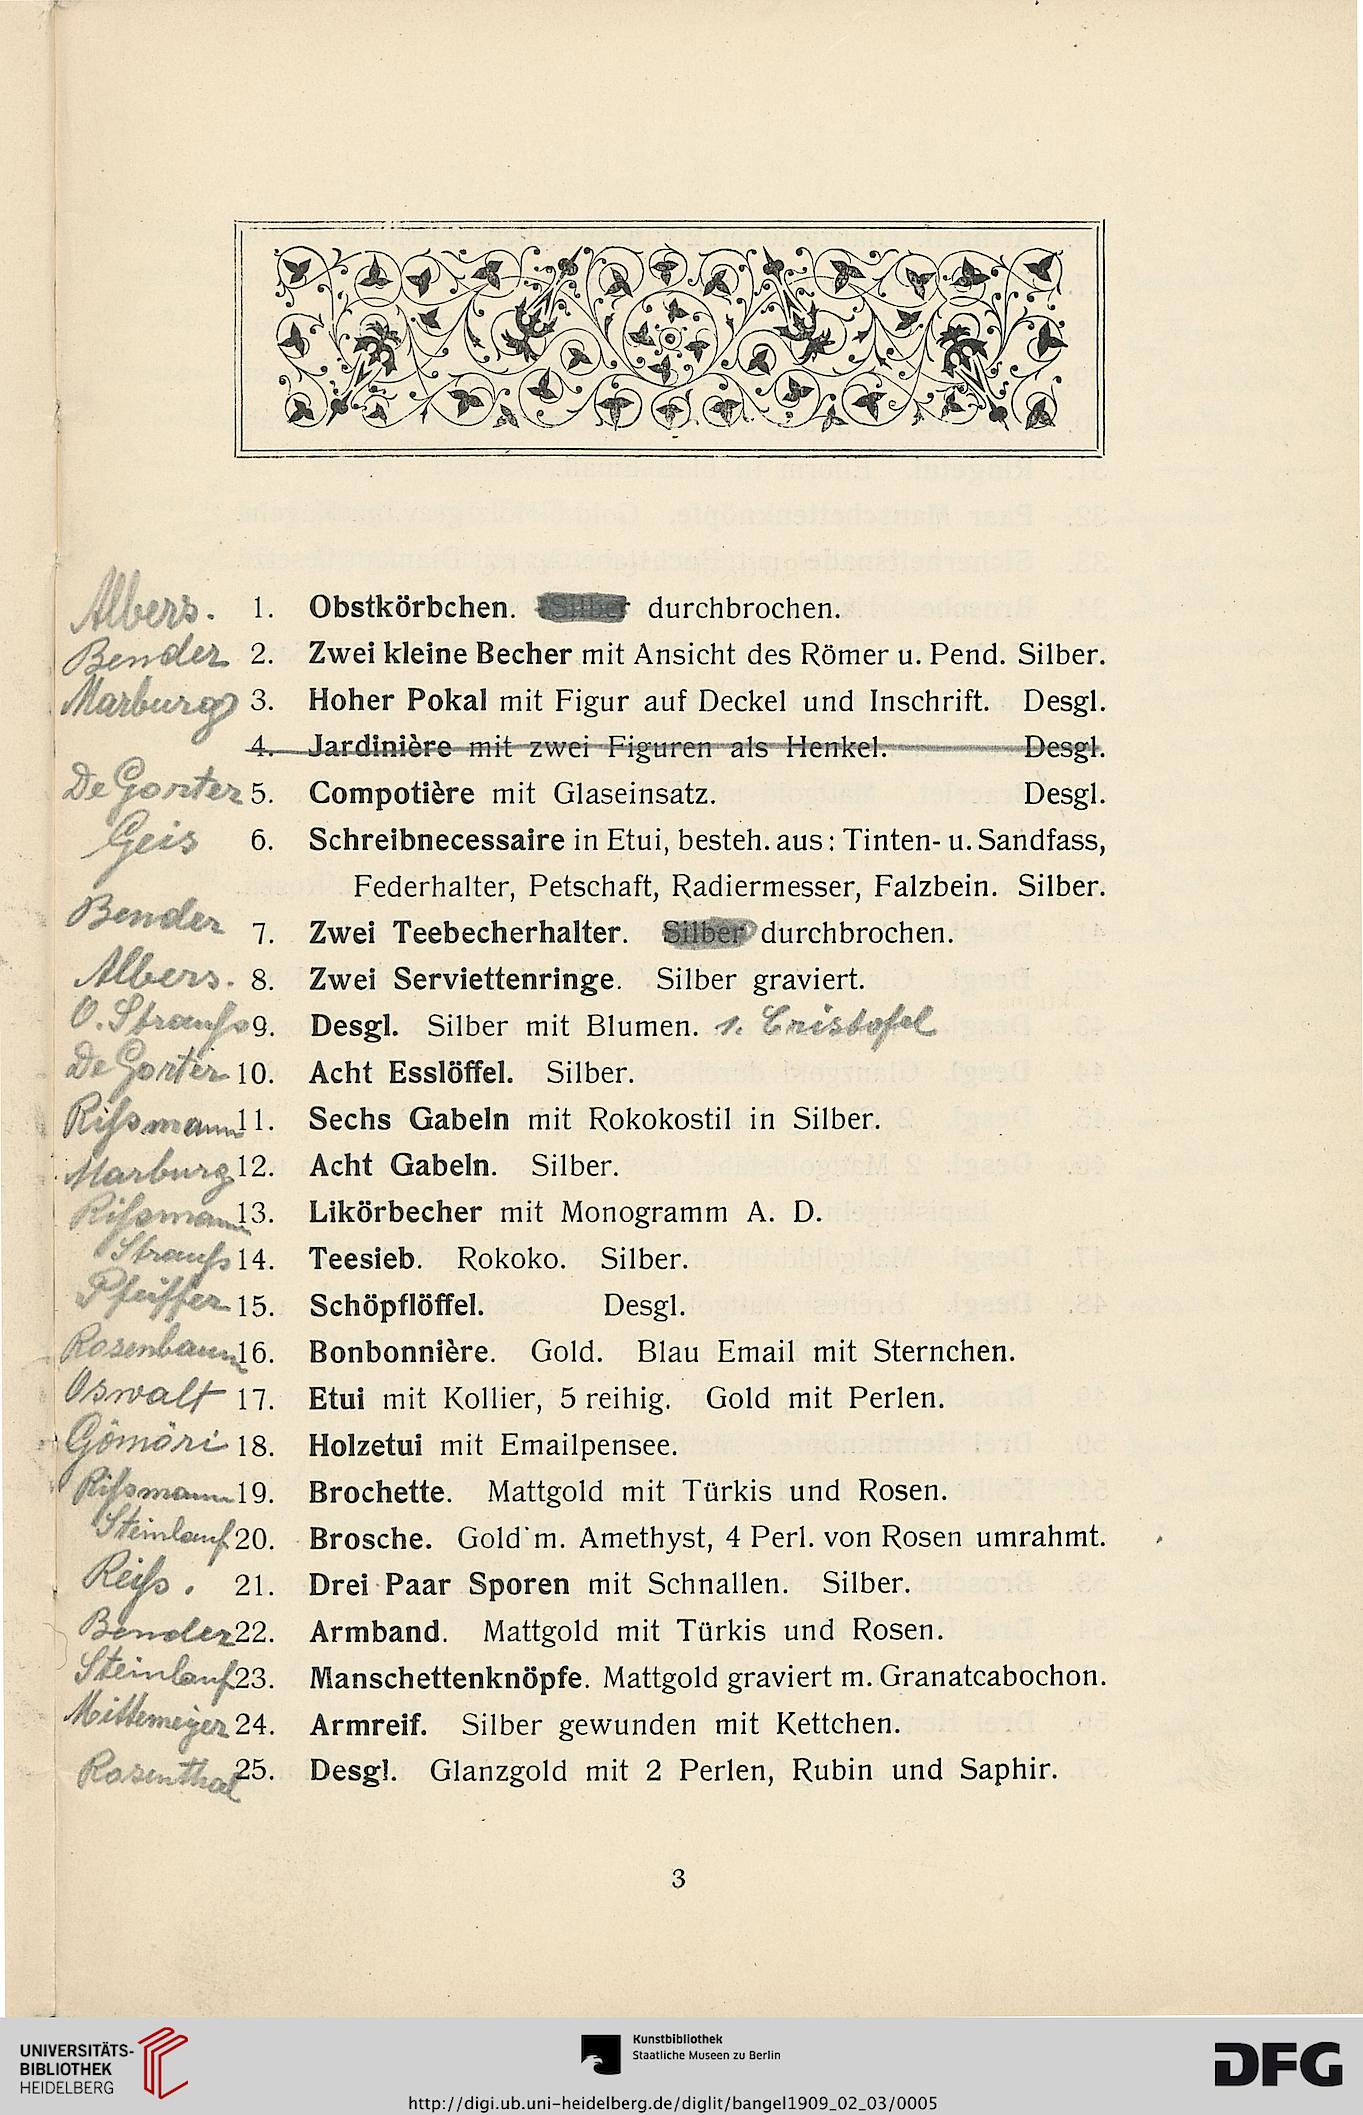 Albers. 1. Obstkörbchen. Silber durchbrochen.
Bender 2. Zwei kleine Becher mit Ansicht des Römer u. Pend. Silber.
Marburg 3. Hoher Pokal mit Figur auf Deckel und Inschrift. Desgl.
4. Jardinière mit zwei Figuren als Henkel. Desgl.
De Gorter 5. Compotière mit Glaseinsatz. Desgl.
Geis 6. Schreibnecessaire in Etui, besteh. aus: Tinten- u. Sandfass,
Federhalter, Petschaft, Radiermesser, Falzbein. Silber.
Bender 7. Zwei Teebecherhalter. Silber durchbrochen.
Albers. 8. Zwei Serviettenringe. Silber graviert.
O. Strauss 9. Desgl. Silber mit Blumen. 1. Cristofel
De Gorter 10. Acht Esslöffel. Silber.
Rissmann 11. Sechs Gabeln mit Rokokostil in Silber.
Marburg 12. Acht Gabeln. Silber.
Rissmann 13. Likörbecher mit Monogramm A. D.
Strauss 14. Teesieb. Rokoko. Silber.
Pfeiffer 15. Schöpflöffel. Desgl.
Rosenbaum 16. Bonbonnière. Gold. Blau Email mit Sternchen.
Oswalt 17. Etui mit Kollier, 5 reihig. Gold mit Perlen.
Gömöri 18. Holzetui mit Emailpensee.
Rissmann 19. Brochette. Mattgold mit Türkis und Rosen.
Steinlauf 20. Brosche. Gold m. Amethyst, 4 Perl. von Rosen umrahmt.
Reiss. 21. Drei Paar Sporen mit Schnallen. Silber.
Bender 22. Armband. Mattgold mit Türkis und Rosen.
Steinlauf 23. Manschettenknöpfe. Mattgold graviert m. Granatcabochon.
Mittemeyer 24. Armreif. Silber gewunden mit Kettchen.
Rosenthal 25. Desgl. Glanzgold mit 2 Perlen, Rubin und Saphir.
3
UNIVERSITÄTS-
BIBLIOTHEK
HEIDELBERG
Kunstbibliothek
Staatliche Museen zu Berlin
DFG
http://digi.ub.uni-heidelberg.de/diglit/bangel1909_02_03/0005